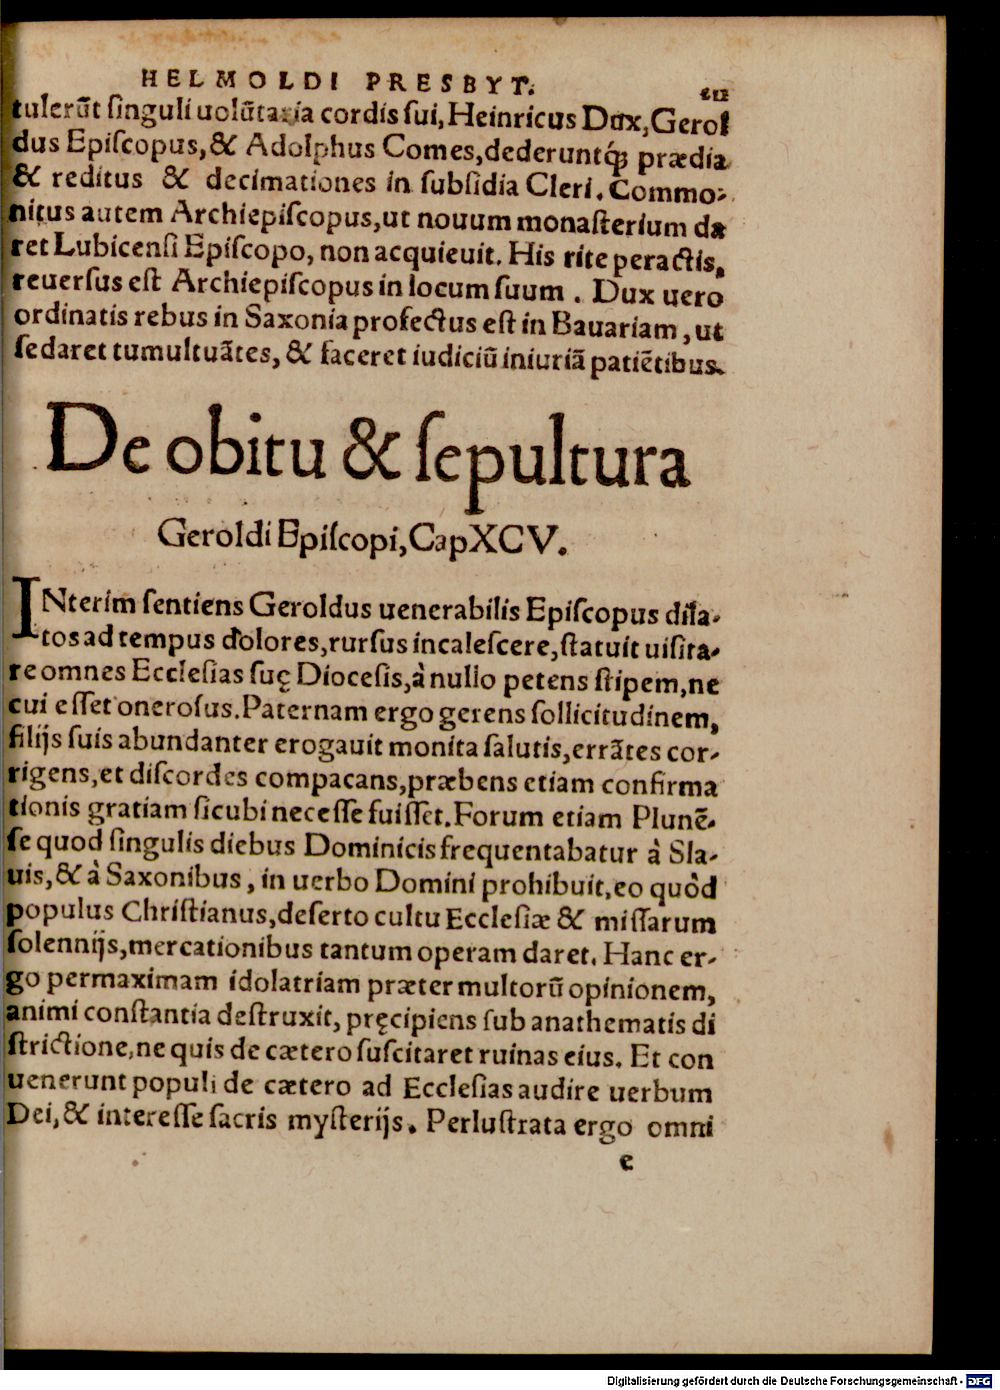 HELMOLDI PRESBYT.
tulerūt ſinguli uolūtaria cordis ſui, Heinricus Dux, Gerol
dus Epiſcopus, & Adolphus Comes, dederuntq́; prædia
& reditus & decimationes in ſubſidia Cleri. Commo-
nitus autem Archiepiſcopus, ut nouum monaſterium da
ret Lubicenſi Epiſcopo, non acquieuit. His rite peractis,
reuerſus eſt Archiepiſcopus in locum ſuum. Dux uero
ordinatis rebus in Saxonia profectus eſt in Bauariam, ut
ſedaret tumultuātes, & faceret iudiciū iniuriā patiētibus.
De obitu & ſepultura
Geroldi Epiſcopi, Cap XCV.
INterim ſentiens Geroldus uenerabilis Epiſcopus dila-
tos ad tempus dolores, rurſus incaleſcere, ſtatuit uiſita-
re omnes Eccleſias ſuę Dioceſis, à nullo petens ſtipem, ne
cui eſſet oneroſus. Paternam ergo gerens ſollicitudinem,
filijs ſuis abundanter erogauit monita ſalutis, errātes cor-
rigens, et diſcordes compacans, præbens etiam confirma
tionis gratiam ſicubi neceſſe fuiſſet. Forum etiam Plunē-
ſe quod ſingulis diebus Dominicis frequentabatur à Sla-
uis, & à Saxonibus, in uerbo Domini prohibuit, eo quòd
populus Chriſtianus, deſerto cultu Eccleſiæ & miſſarum
ſolennijs, mercationibus tantum operam daret. Hanc er-
go permaximam idolatriam præter multorū opinionem,
animi conſtantia deſtruxit, pręcipiens ſub anathematis di
ſtrictione, ne quis de cætero ſuſcitaret ruinas eius. Et con
uenerunt populi de cætero ad Eccleſias audire uerbum
Dei, & intereſſe ſacris myſterijs. Perluſtrata ergo omni
e
Digitalisierung gefördert durch die Deutsche Forschungsgemeinschaft - DFG